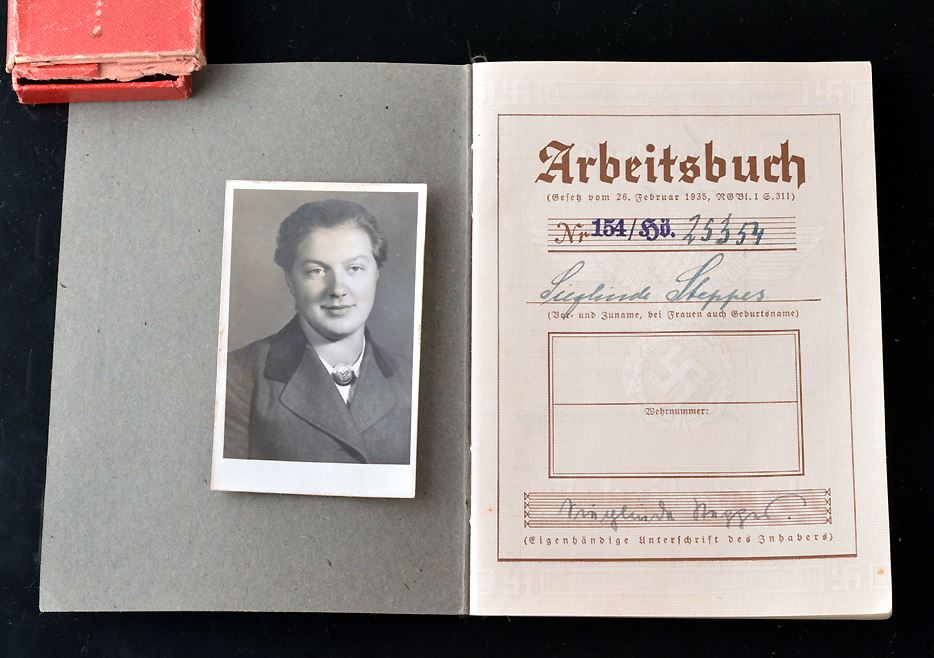 Arbeitsbuch
(Gesetz vom 26. Februar 1935, RGBl. I S. 311)
Nr 154/Hö. 25354
Sieglinde Steppes
(Vor- und Zuname, bei Frauen auch Geburtsname)
Wehrnummer:
Sieglinde Steppes.
(Eigenhändige Unterschrift des Inhabers)